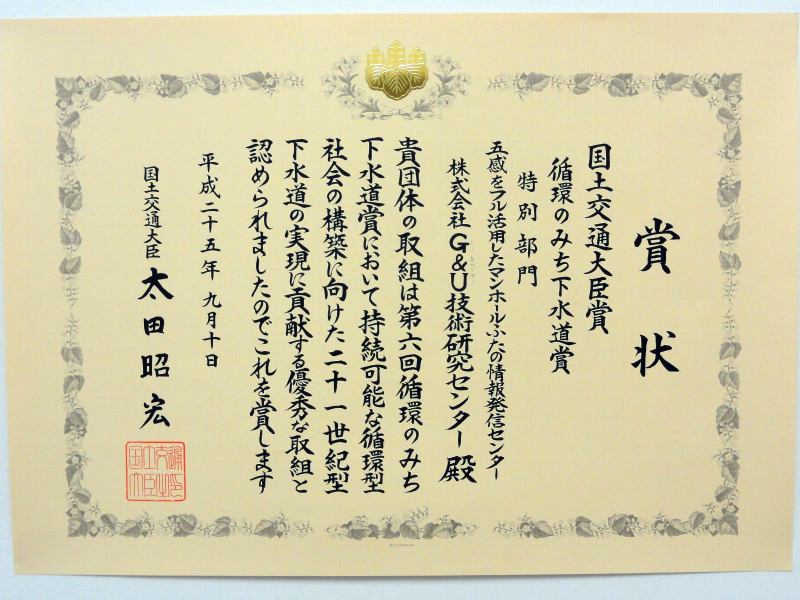 賞状
国土交通大臣賞
循環のみち下水道賞
特別部門
五感をフル活用したマンホールふたの情報発信センター
株式会社G&U技術研究センター 殿
貴団体の取組は第六回循環のみち
下水道賞において持続可能な循環型
社会の構築に向けた二十一世紀型
下水道の実現に貢献する優秀な取組と
認められましたのでこれを賞します
平成二十五年九月十日
国土交通大臣 太田昭宏
国土交通大臣之印